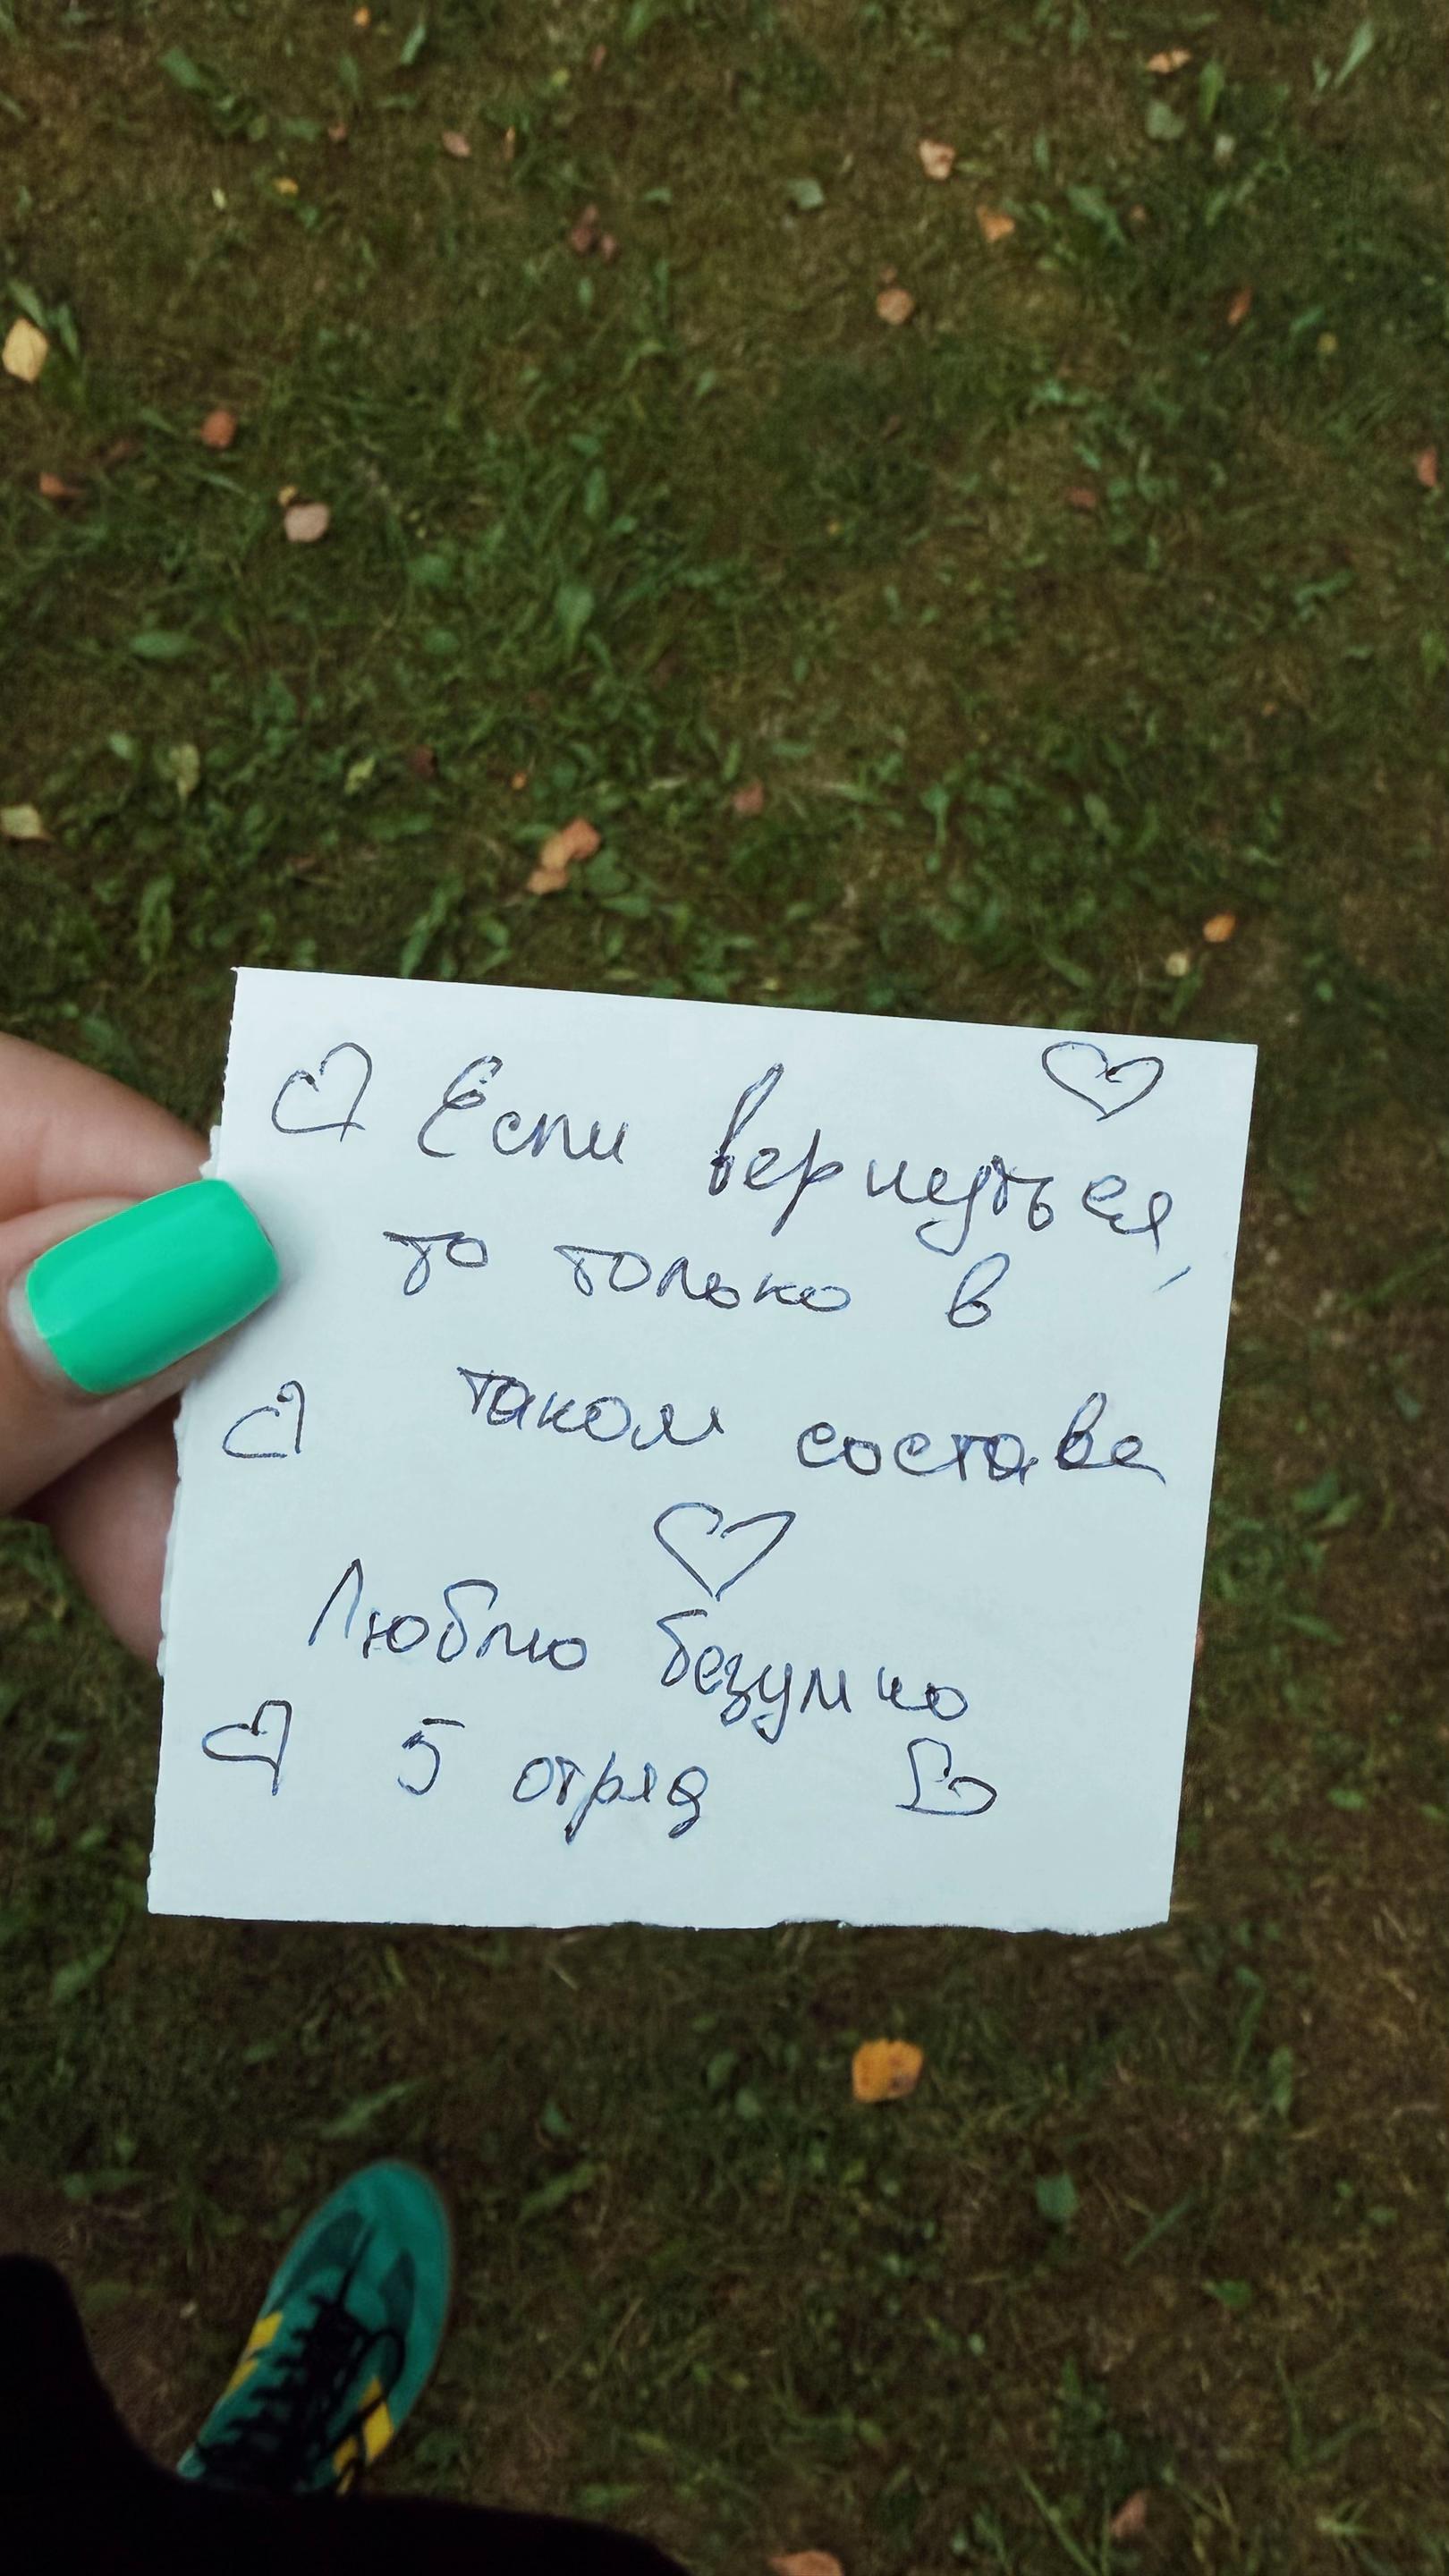 Если вернуться,
то только в
таком составе
Люблю безумно
5 отряд